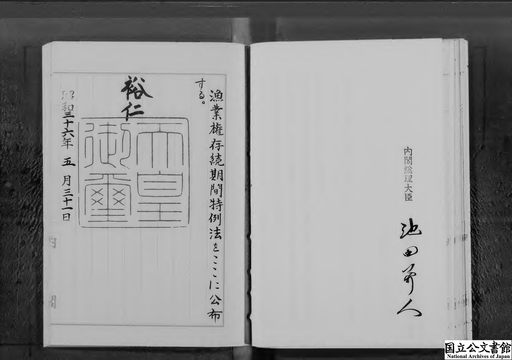 漁業権存続期間特例法をここに公布
する。
裕仁
天皇
御璽
昭和三十六年五月三十一日
内閣総理大臣
池田勇人
国立公文書館
National Archives of Japan